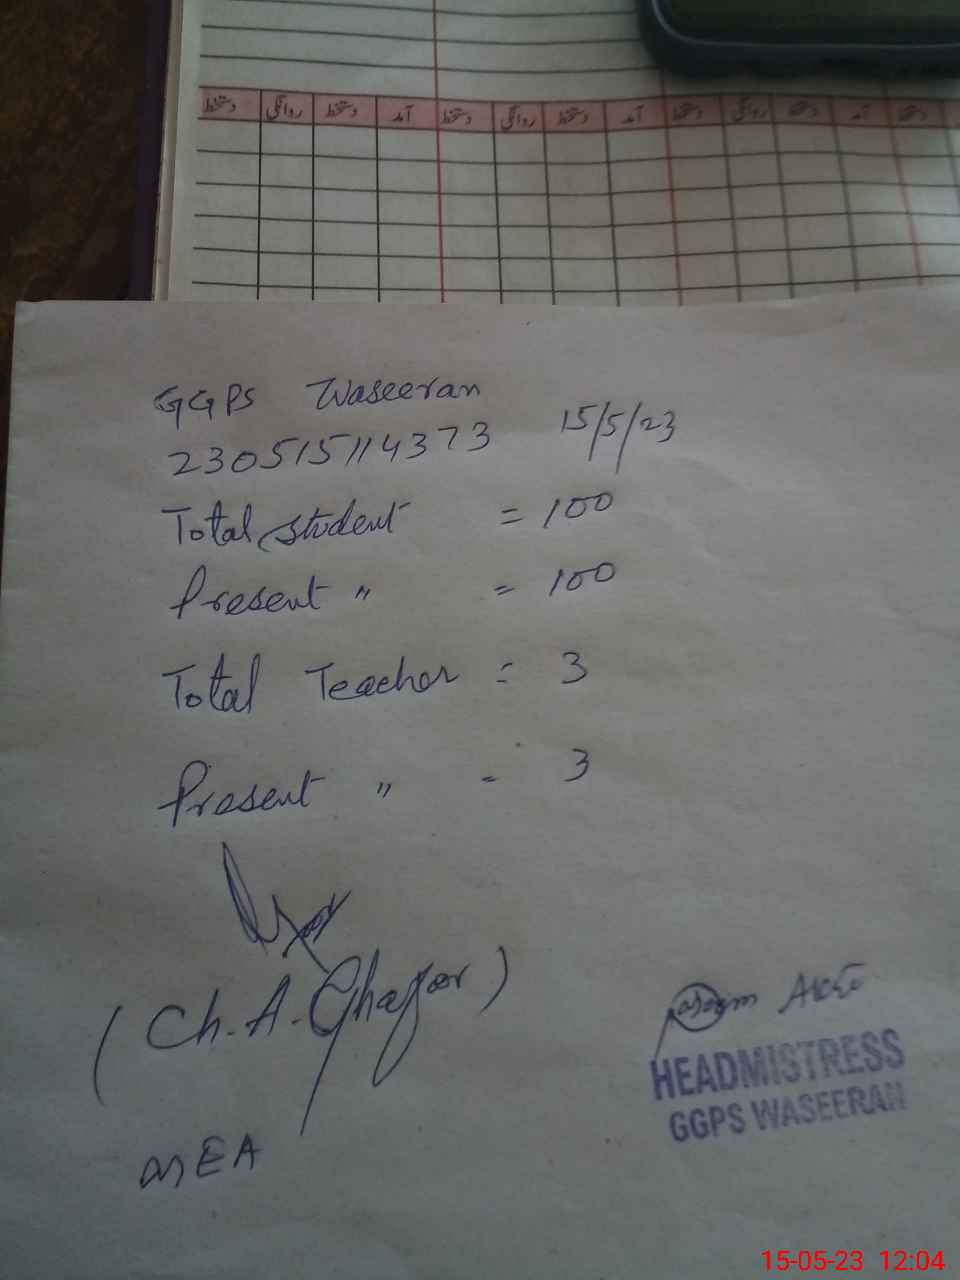 دستخط روانگی دستخط آمد دستخط روانگی دستخط آمد دستخط روانگی دستخط آمد دستخط
GGPS Waseeran
230515114373 15/5/23
Total student = 100
Present " = 100
Total Teacher = 3
Present " = 3
(Ch. A. Ghafoor)
MEA
HEADMISTRESS
GGPS WASEERAN
15-05-23 12:04